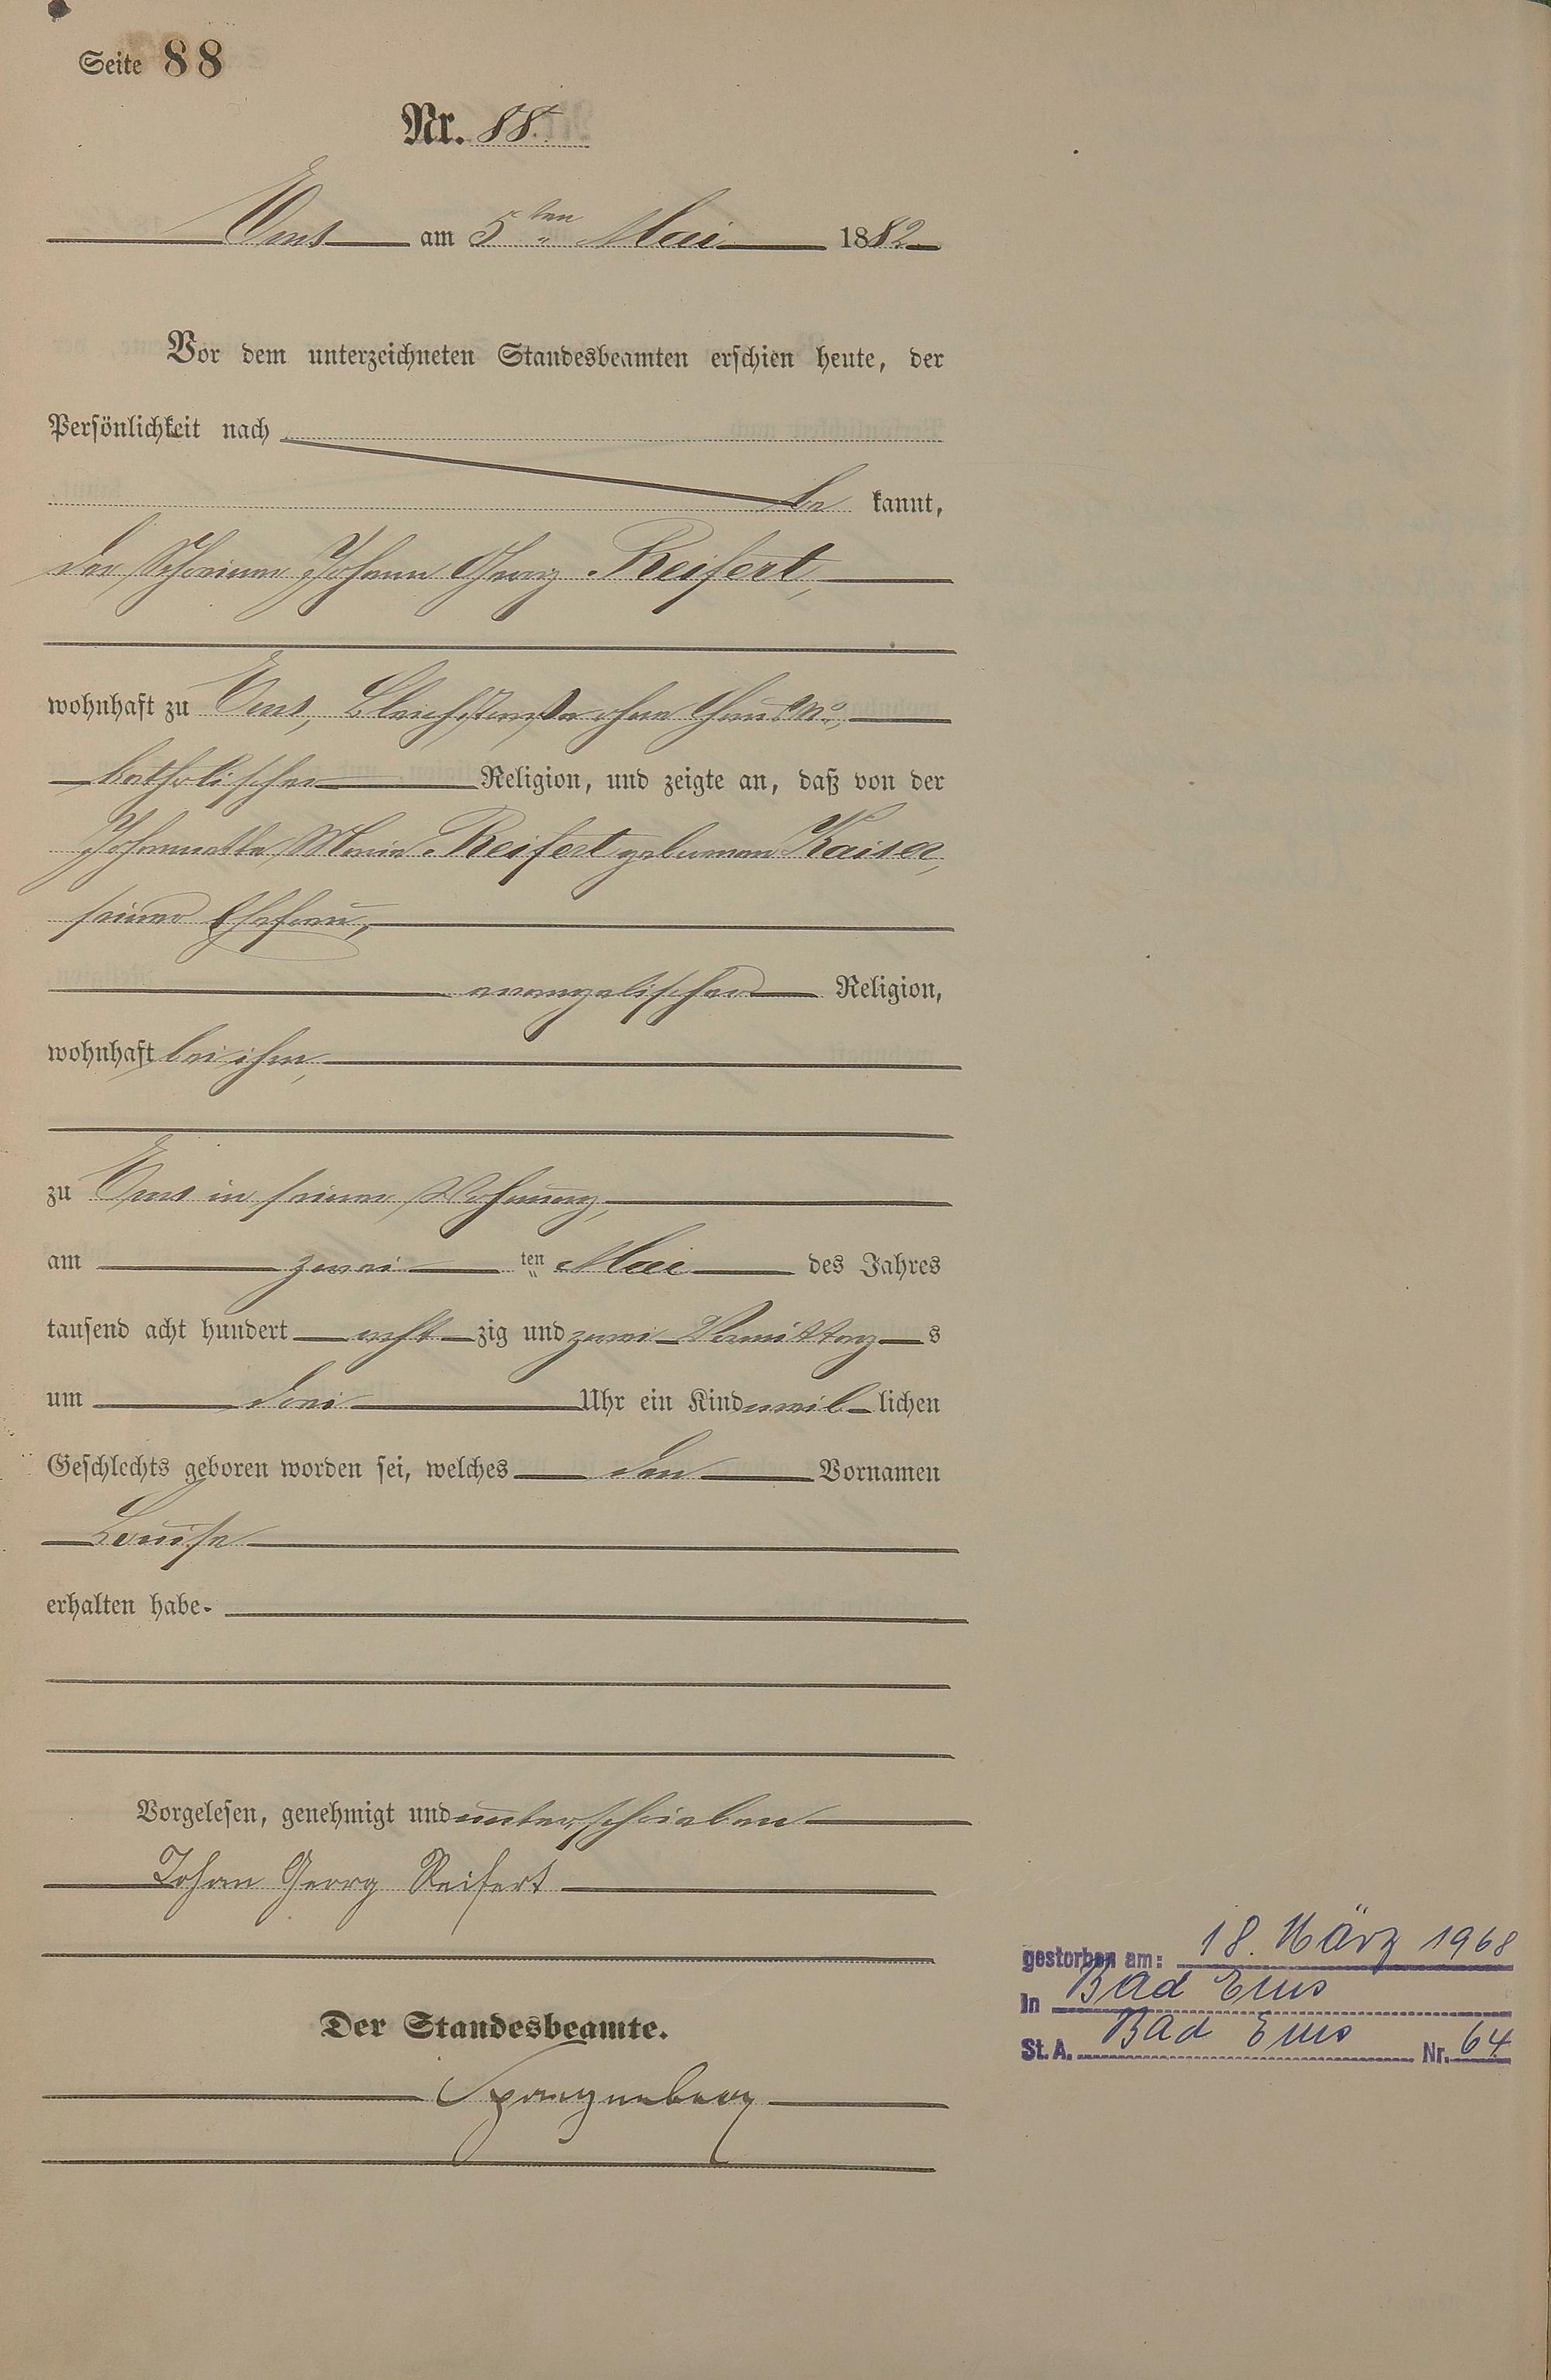 Seite 88
Nr. 88.
Ems am 5ten Mai 1882
Vor dem unterzeichneten Standesbeamten erschien heute, der
Persönlichkeit nach
be kannt,
der Schreiner Johann Georg Reifert,
wohnhaft zu Ems, Bleichstraße ohne Haus No,
katholischer Religion, und zeigte an, daß von der
Johannette Maria Reifert geborenen Kaiser,
seiner Ehefrau,
evangelischer Religion,
wohnhaft bei ihm,
zu Ems in seiner Wohnung,
am zwei ten Mai des Jahres
tausend acht hundert acht zig und zwei Vormittag s
um drei Uhr ein Kind weib lichen
Geschlechts geboren worden sei, welches den Vornamen
Louise
erhalten habe.
Vorgelesen, genehmigt und unterschrieben
Johan Georg Reifert
Der Standesbeamte.
Spangenberg
gestorben am: 18. März 1968
in Bad Ems
St. A. Bad Ems Nr. 64